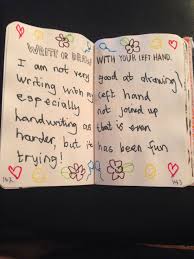 WRITE OR DRAW WITH YOUR LEFT HAND.
I am not very good at drawing/
writing with my left hand
especially not joined up
handwriting as that is even
harder, but it has been fun
trying!
142 143